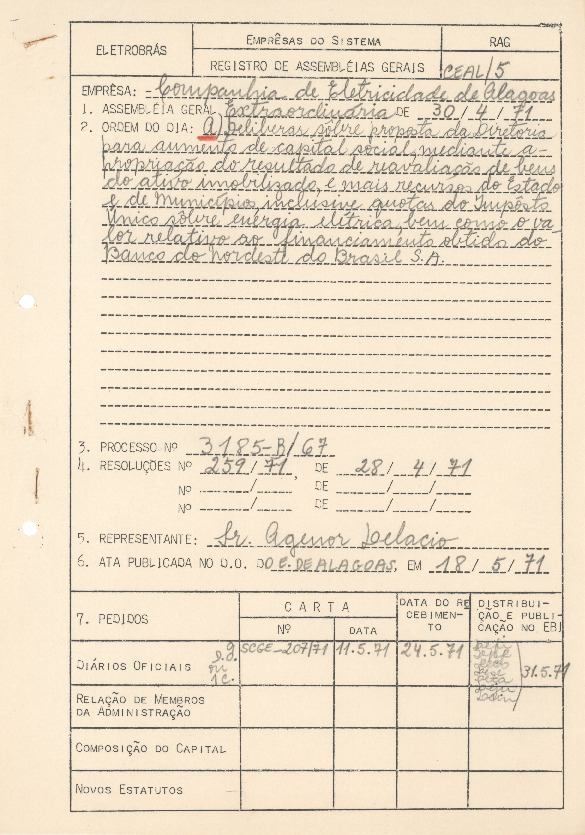 ELETROBRÁS
EMPRÊSAS DO SISTEMA
RAG
REGISTRO DE ASSEMBLÉIAS GERAIS
CEAL/5
EMPRÊSA: Companhia de Eletricidade de Alagoas
1. ASSEMBLÉIA GERAL Extraordinária DE 30/4/71
2. ORDEM DO DIA: a) Deliberar sôbre proposta da Diretoria
para aumento de capital social, mediante a-
propriação do resultado de reavaliação de bens
do ativo imobilizado, e mais recursos do Estado
e de Municípios, inclusive quotas do Impôsto
Único sôbre energia elétrica, bem como o va-
lor relativo ao financiamento obtido do
Banco do Nordeste do Brasil S.A.
3. PROCESSO Nº 3185-B/67
4. RESOLUÇÕES Nº 259/71, DE 28/4/71
Nº / DE / /
Nº / DE / /
5. REPRESENTANTE: Sr. Agenor Delacio
6. ATA PUBLICADA NO D.O. DO E. DE ALAGOAS, EM 18/5/71
7. PEDIDOS
CARTA
Nº
DATA
DATA DO RE
CEBIMEN-
TO
DISTRIBUI-
ÇÃO E PUBLI-
CAÇÃO NO EBI
DIÁRIOS OFICIAIS
SCGE-207/71 11.5.71 24.5.71 31.5.71
RELAÇÃO DE MEMBROS
DA ADMINISTRAÇÃO
COMPOSIÇÃO DO CAPITAL
NOVOS ESTATUTOS